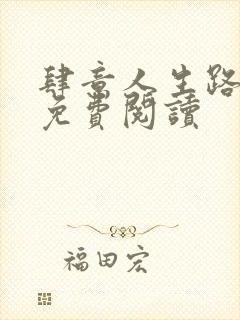 肆意人生路
免費閱讀
福田宏